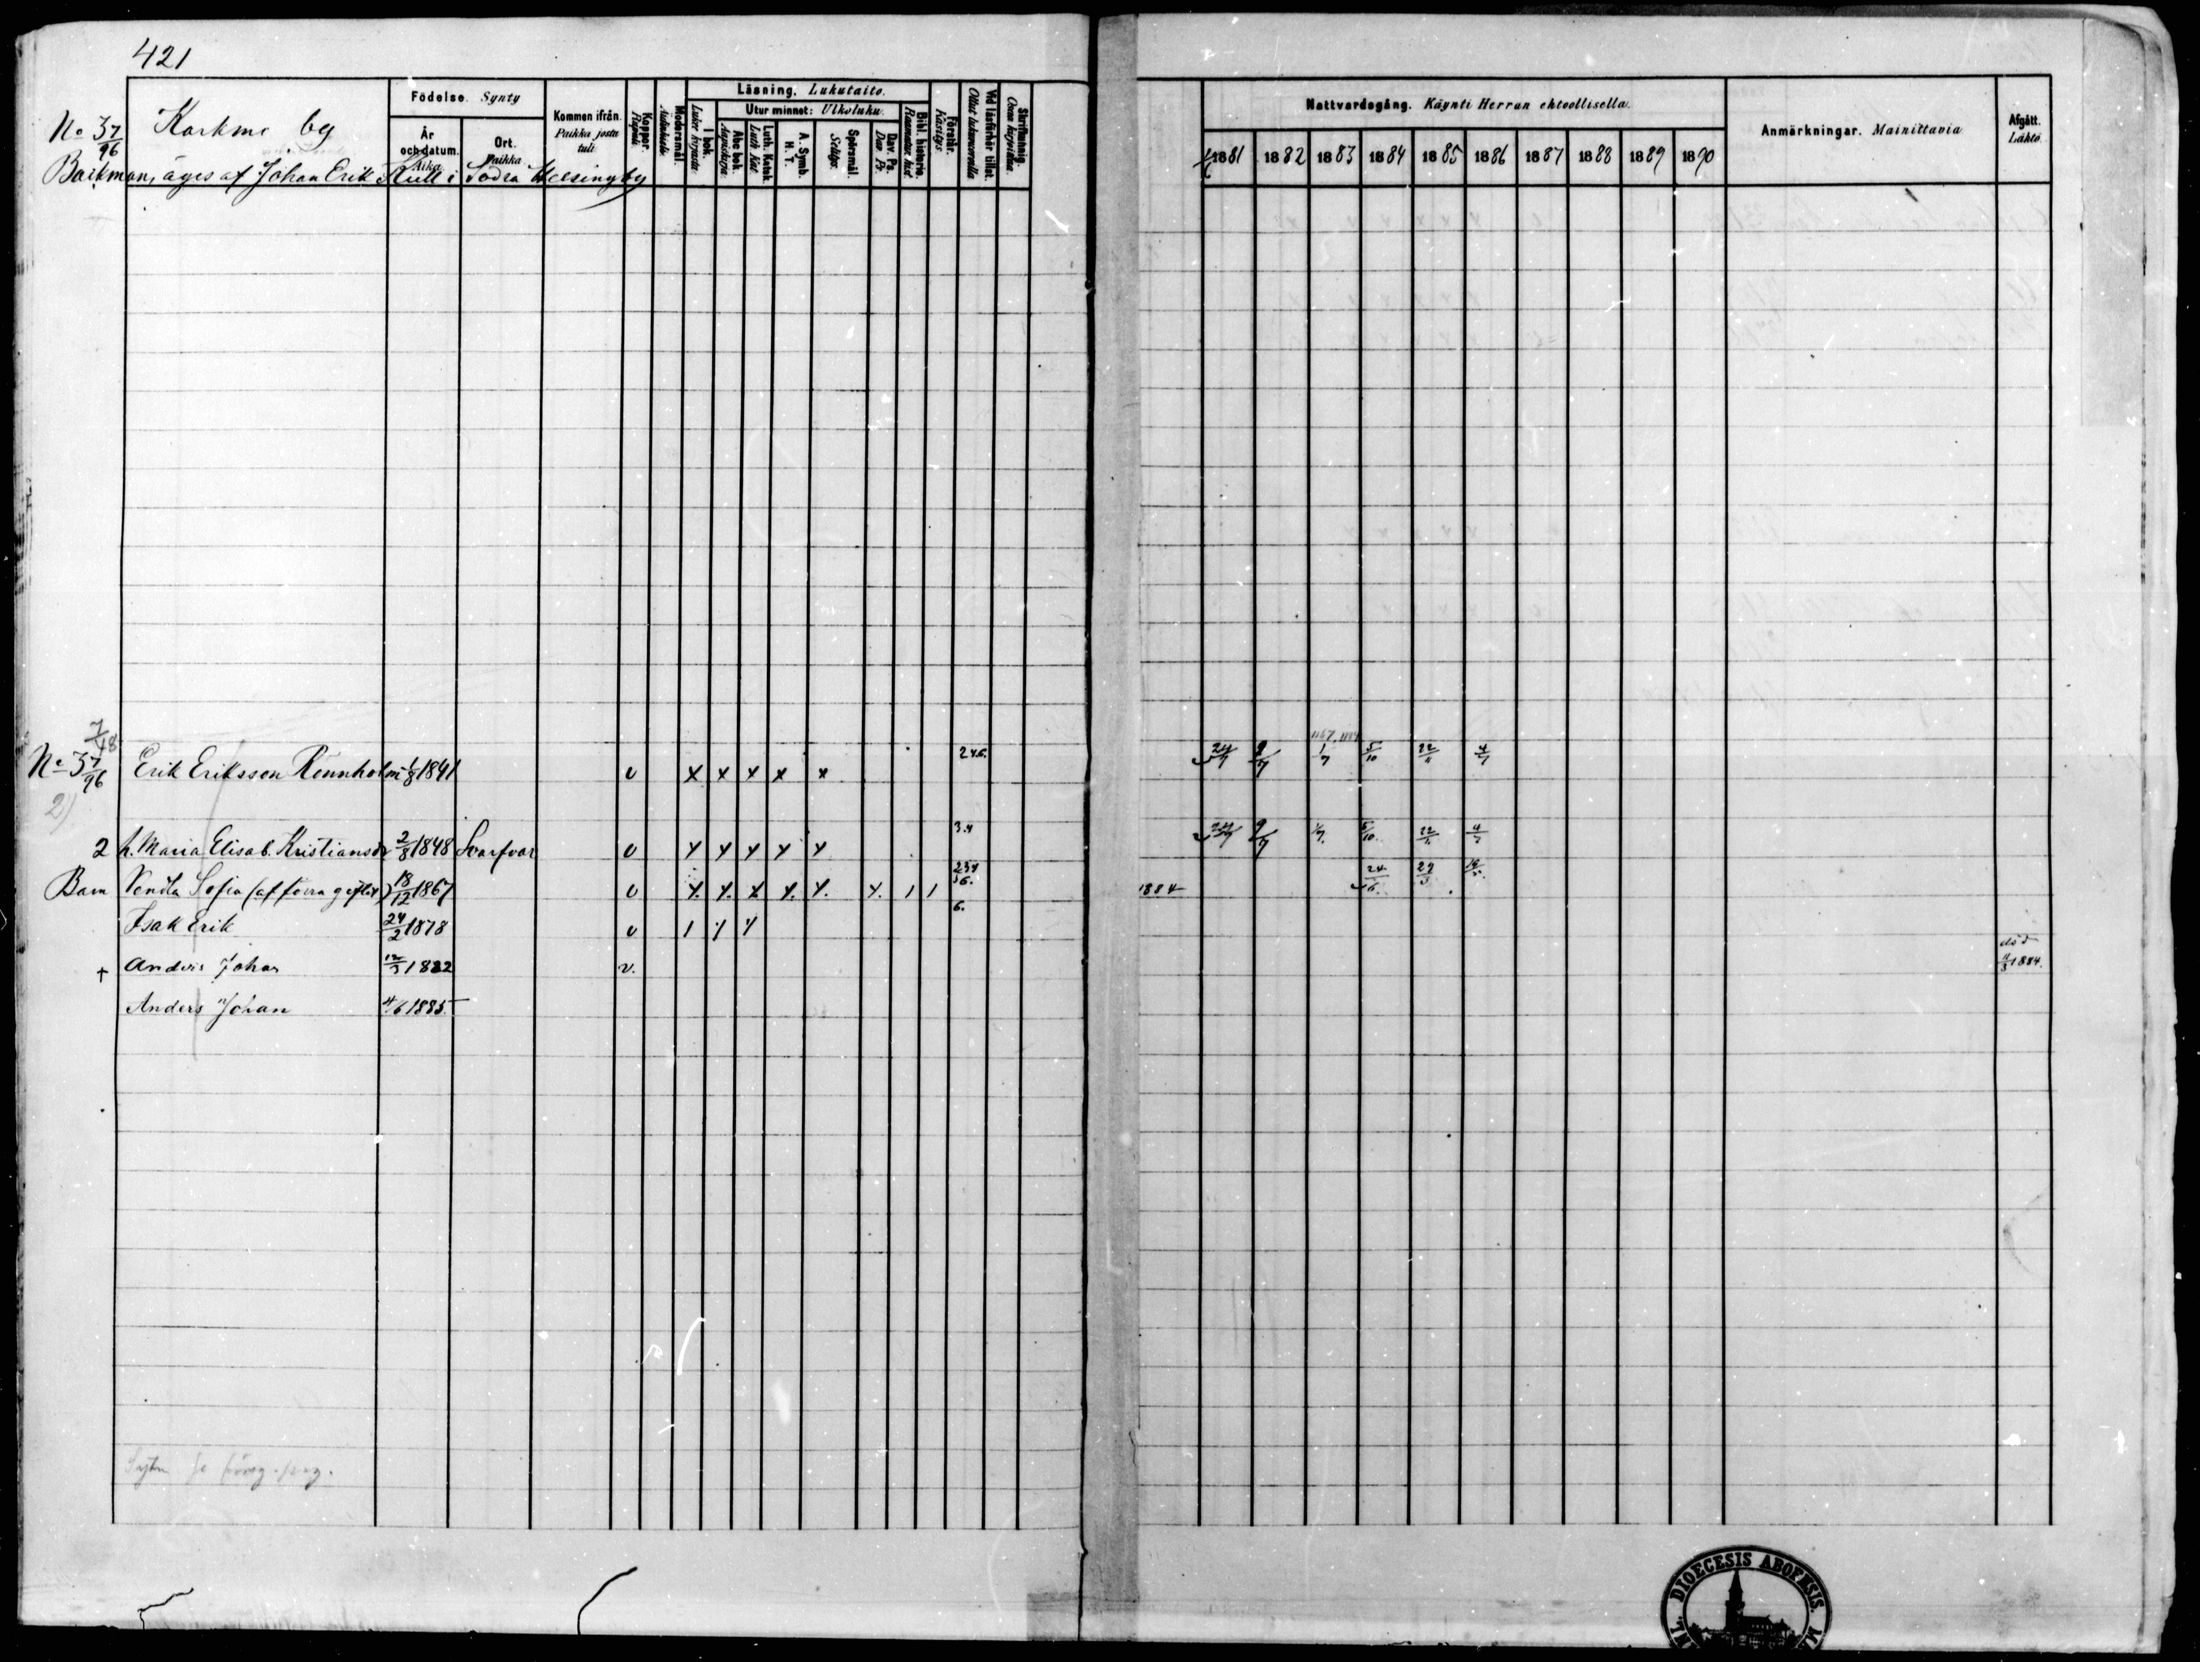 421
No 37/96 Karkmo by
Backman, äges af Johan Erik Kull i Södra Helsingby
Födelse. Synty
År och datum. Aika.
Ort. Paikka
Kommen ifrån. Paikka josta tuli.
Koppor. Rupuli.
Modersmål. Äidinkieli.
Läsning. Lukutaito.
I bok. Lukee kirjasta
Utur minnet: Ulkoluku.
Abc bok. Aapiskirja.
Luth. Katek. Luth. Kat.
A. Symb. H. T.
Spörsmål. Selitys.
Dav. Ps. Dav. Ps.
Bibl. historia. Raamatun hist.
Förstår. Käsitys.
Vid läsförhör tillst. Ollut lukuvuorolla
Skrifkunnig. Osaa kirjoittaa.
Nattvardsgång. Käynti Herran ehtoollisella.
1881 1882 1883 1884 1885 1886 1887 1888 1889 1890
Anmärkningar. Mainittavia
Afgått. Lähtö.
7/18
No 37/96 Erik Eriksson Rönnholm 1/8 1841 v x x x x x 2.4.6. 24/7 9/7 1/7 5/10 22/11 4/7
2)
2 h. Maria Elisab. Kristiansdr 2/8 1848 Svarfvar v 3.4 24/7 9/7 1/7. 5/10. 4/7
Barn Vendla Sofia (af förra giftet) 18/12 1867 v 1884 24/6.
Isak Erik 24/2 1878 v 6.
† Anders Johan 12/3 1882 v. död 1884.
Anders Johan 4/6 1885.
DIOECESIS ABOENSIS.